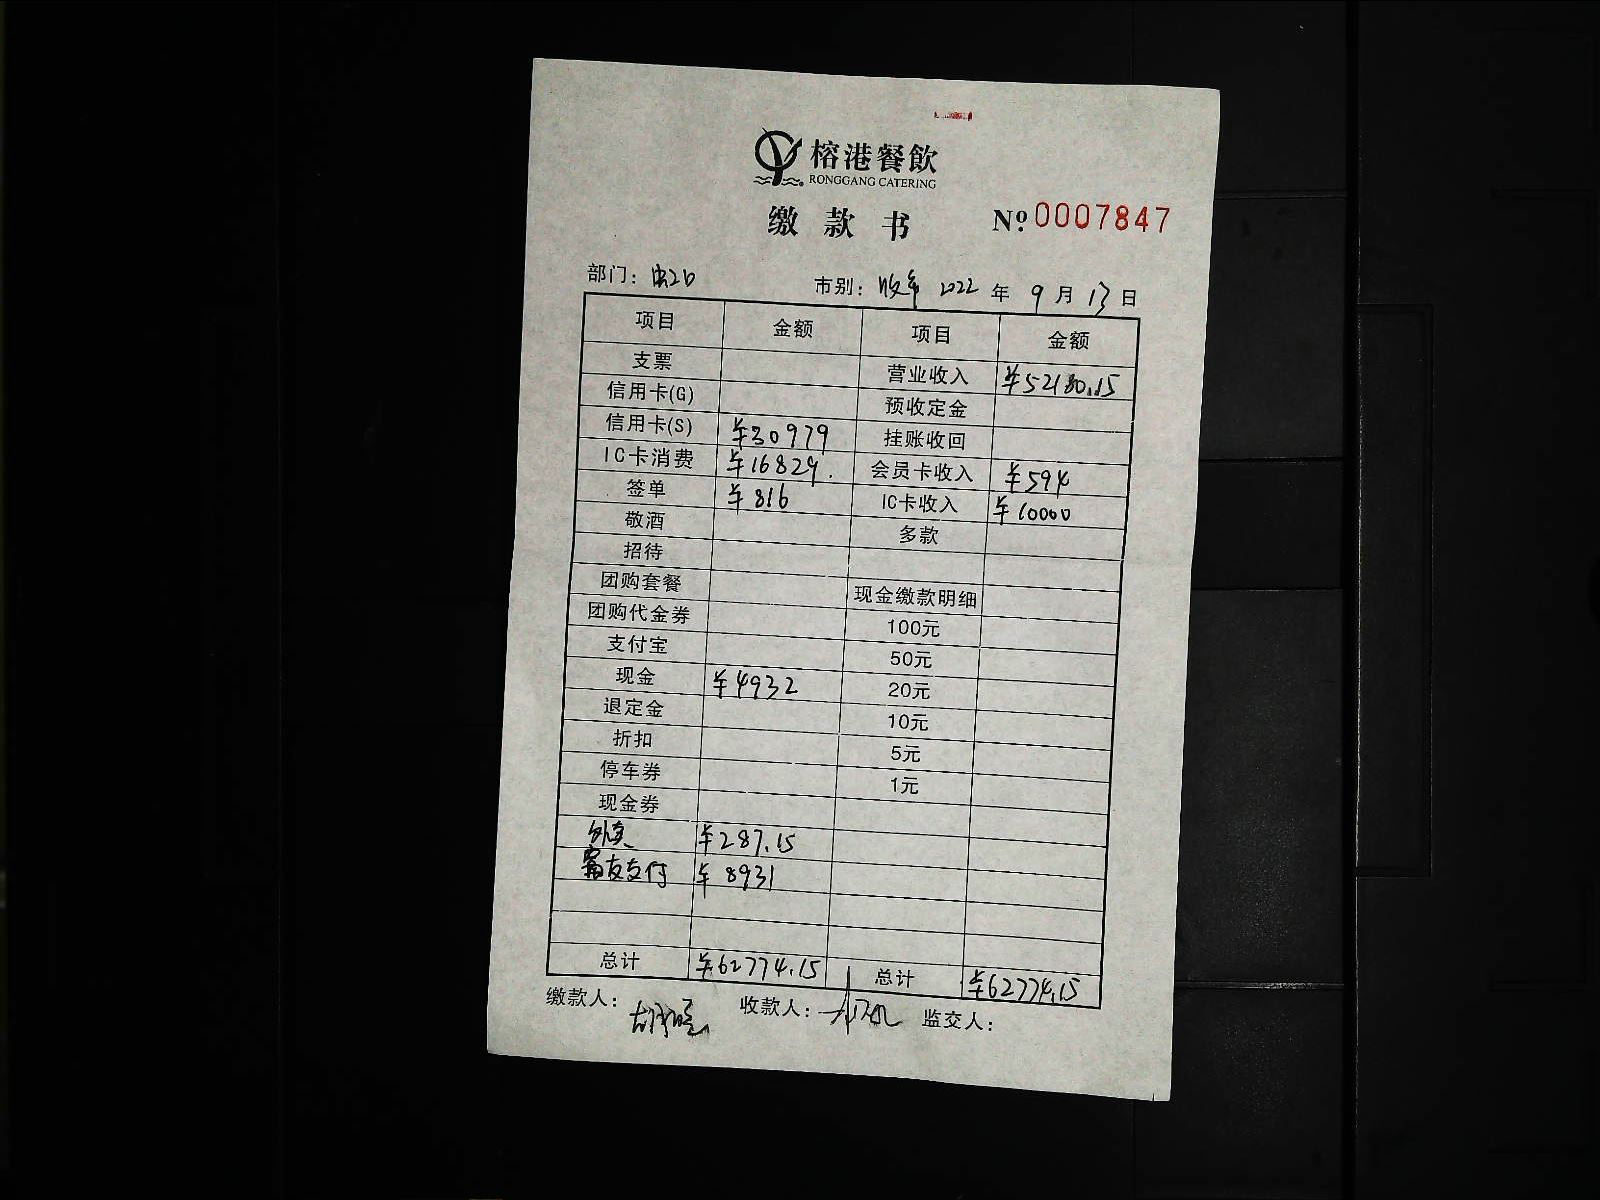 榕港餐飲
RONGGANG CATERING
缴款书 Nº 0007847
部门: 市别: 收市 2022 年 9 月 13 日
项目 金额 项目 金额
支票 营业收入 ¥52180.15
信用卡(G) 预收定金
信用卡(S) ¥30979 挂账收回
IC卡消费 ¥16829. 会员卡收入 ¥594
签单 ¥816 IC卡收入 ¥10000
敬酒 多款
招待
团购套餐 现金缴款明细
团购代金券 100元
支付宝 50元
现金 ¥4932 20元
退定金 10元
折扣 5元
停车券 1元
现金券
外卖 ¥287.15
富友支付 ¥8931
总计 ¥62774.15 总计 ¥62774.15
缴款人: 收款人: 监交人: